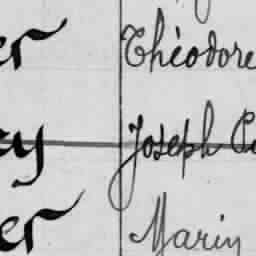 er Théodore
ey Joseph
er Marin